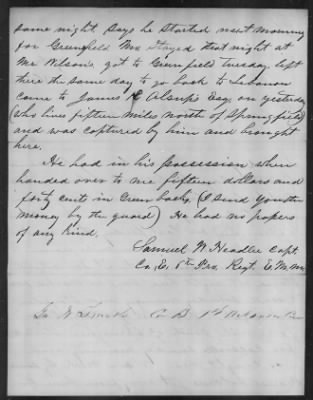 same night. Says he started next Morning
for Greenfield Mo Stayed that night at
Mr Wilson's, got to Greenfield tuesday, left
there the same day to go back to Lebanon
came to James R Alsups Esq. on yesterday
(who lives fifteen miles North of Springfield)
and was captured by him and brought
here.
He had in his possession when
handed over to me fifteen dollars and
forty cents in Green backs, (I Send You the
money by the guard) He had no papers
of any kind.
Samuel W Headlee Capt.
Co, E. Pro. Regt E. M. M.
Co B. 1st